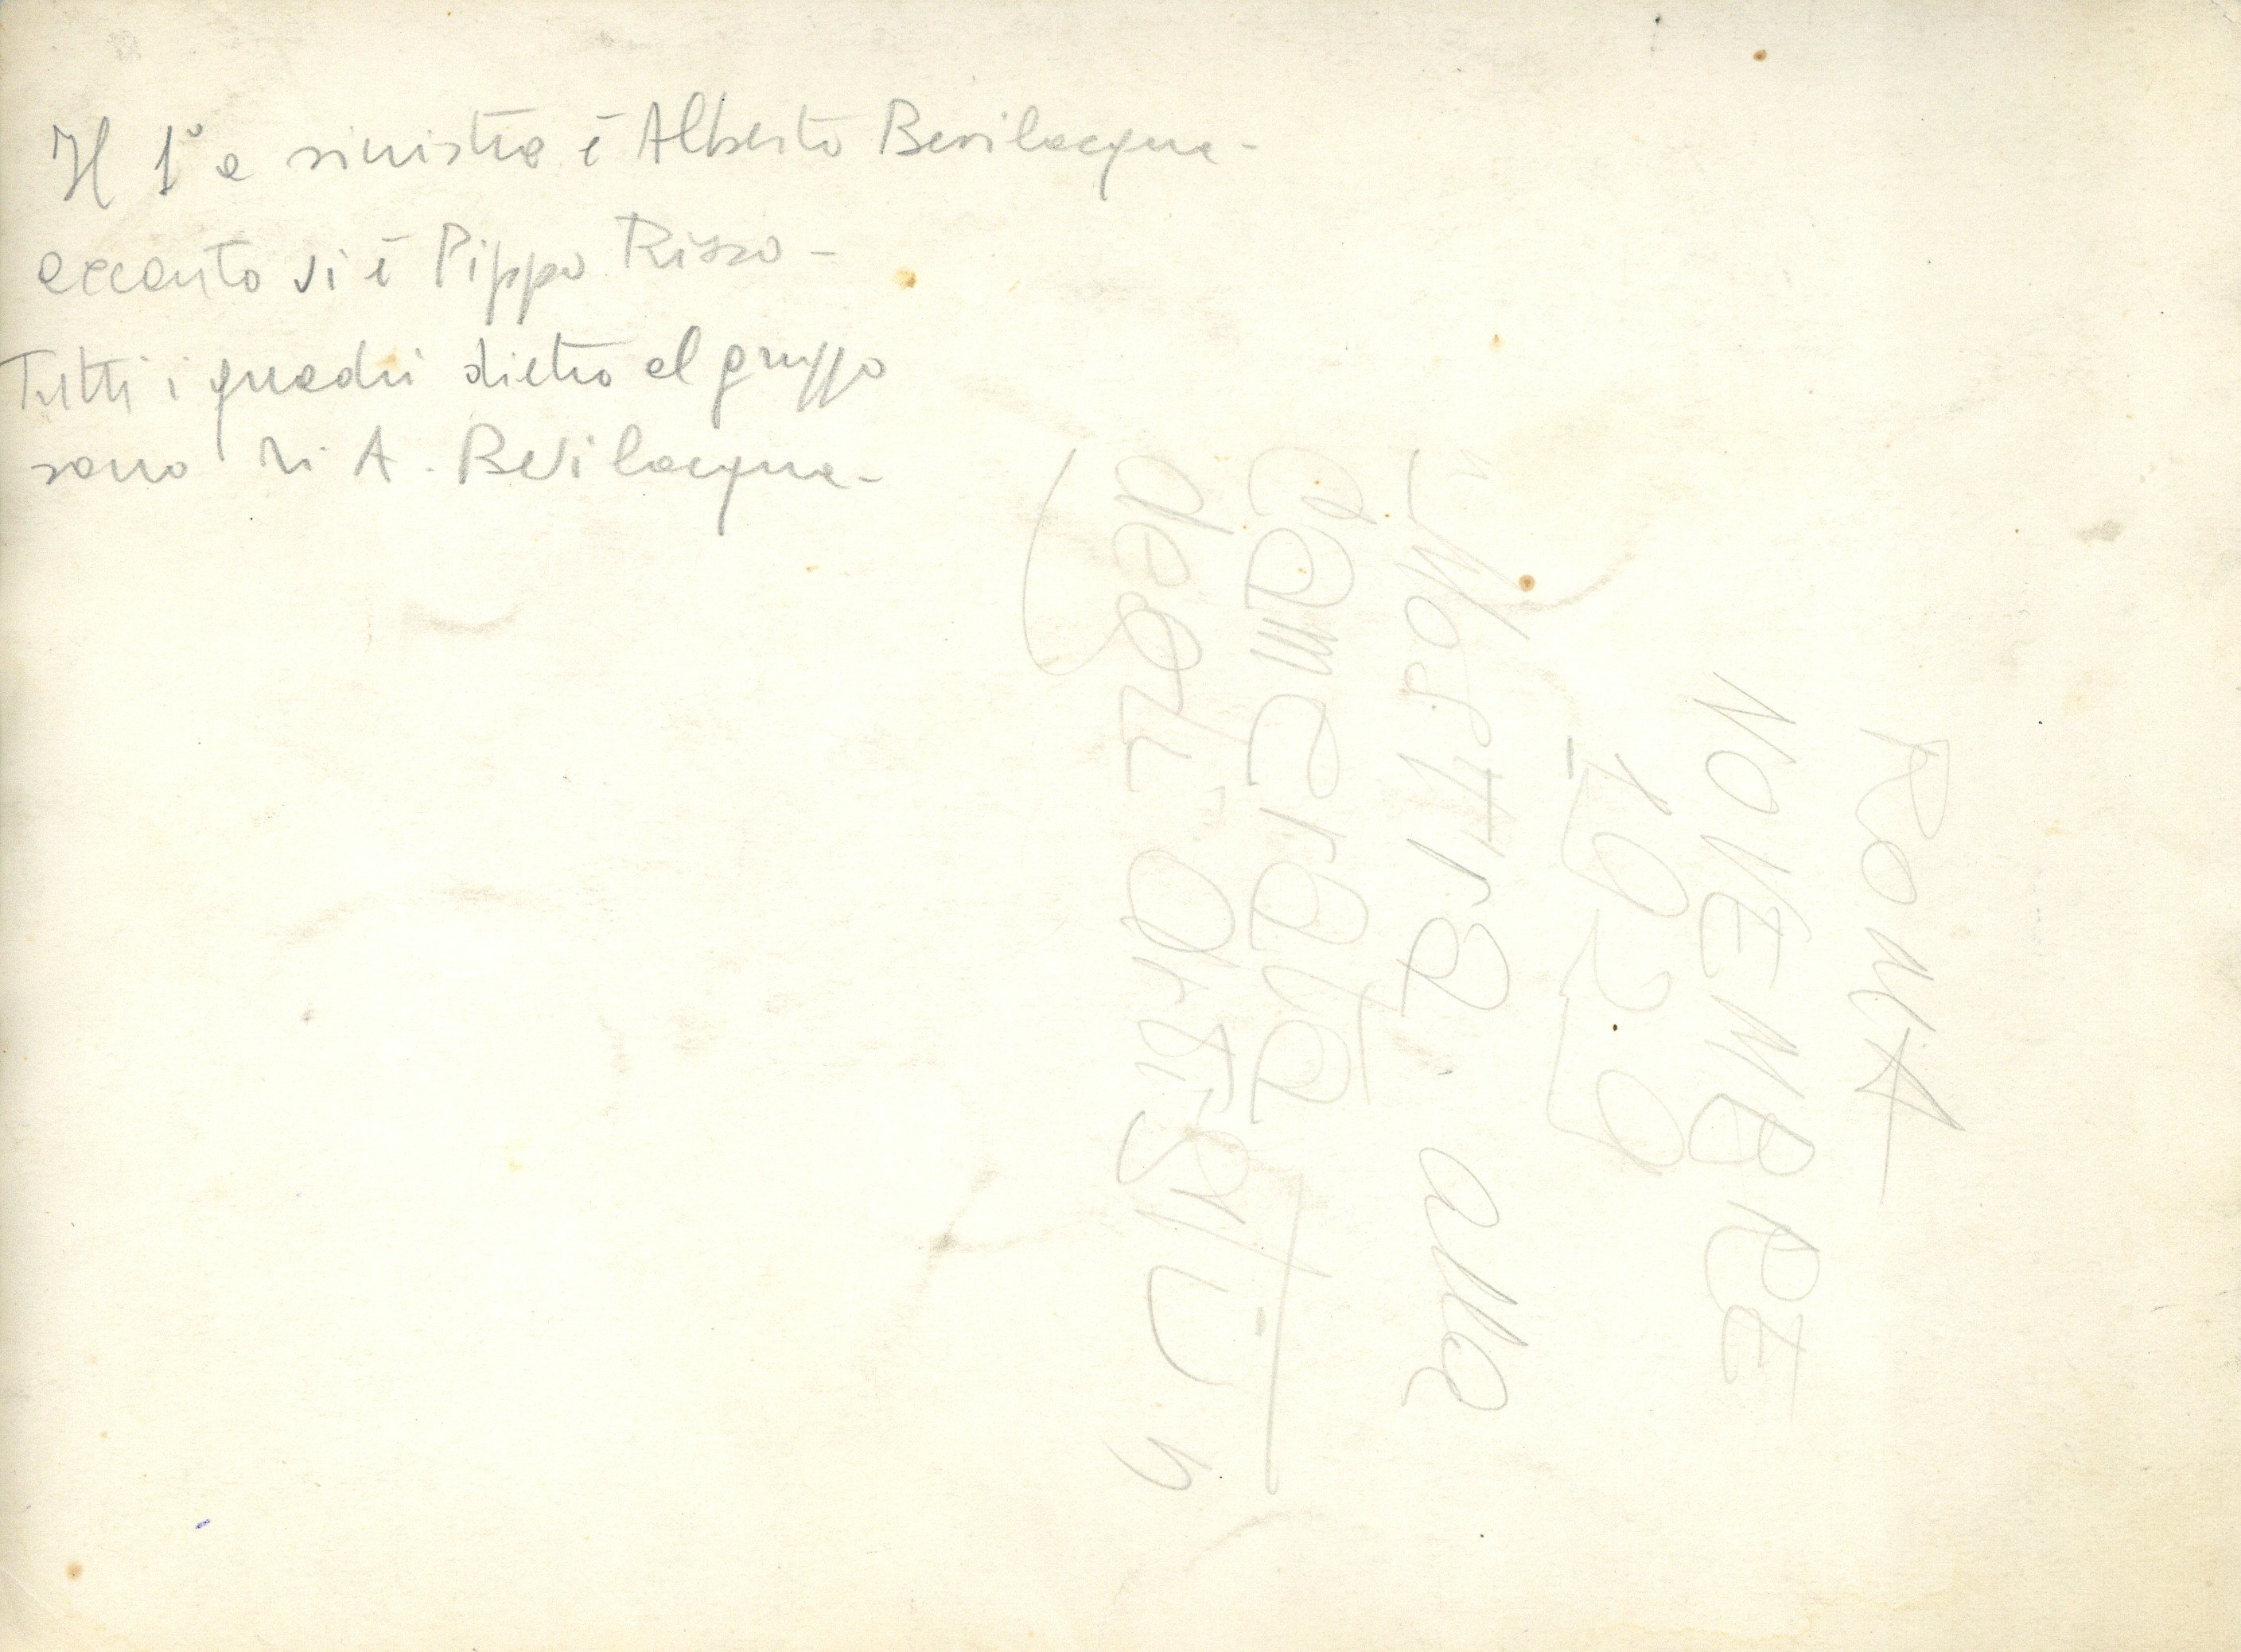 Il 1° a sinistra è Alberto Bevilacqua -
accanto vi è Pippo Rizzo -
Tutti i quadri dietro al gruppo
sono di A. Bevilacqua -
ROMA
NOVEMBRE
1929
"Mostra alla
Camerata
degli Artisti"